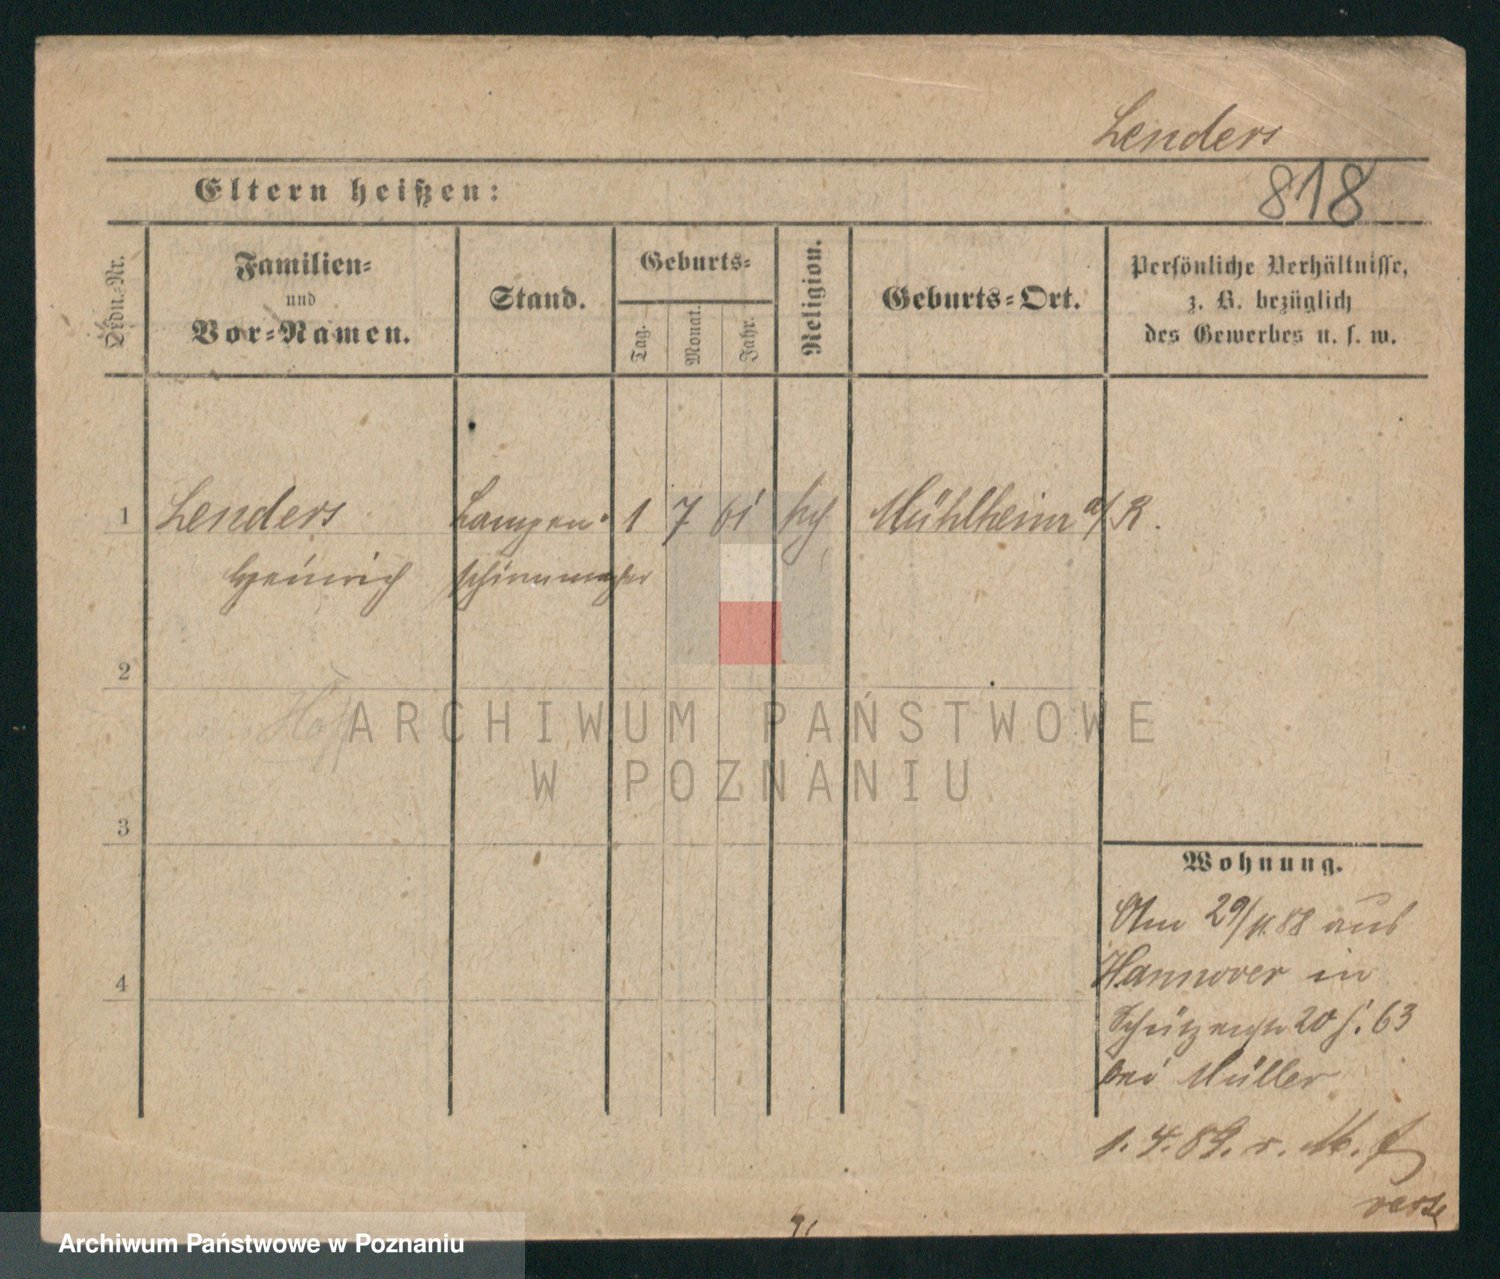 Lenders
818
Eltern heißen:
Ordn.-Nr.
Familien-
und
Vor-Namen.
Stand.
Geburts-
Tag.
Monat.
Jahr.
Religion.
Geburts-Ort.
Persönliche Verhältnisse,
z. B. bezüglich
des Gewerbes u. s. w.
1 Lenders Lampen- 1 7 61 Mühlheim a/R.
Heinrich
2
ARCHIWUM PAŃSTWOWE
W POZNANIU
3
Wohnung.
Am 29/11.88 aus
Hannover in
4
Schützenstr 20 63
bei Müller
1.4.89. v. M.
Archiwum Państwowe w Poznaniu